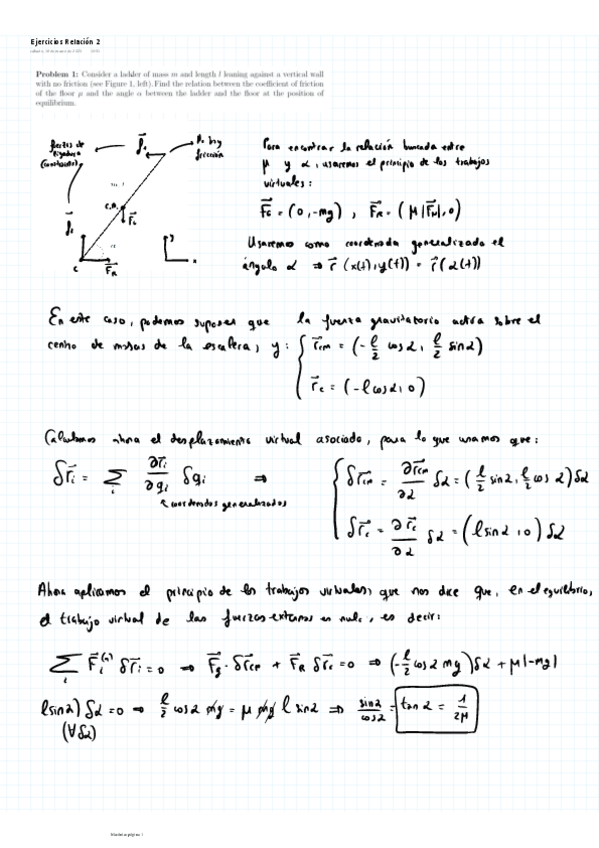 Ejercicios Relación 2
Problem 1: Consider a ladder of mass m and length l leaning against a vertical wall
with no friction (see Figure 1, left). Find the relation between the coefficient of friction
of the floor μ and the angle α between the ladder and the floor at the position of
equilibrium.
fuerzas de
ligadura
No hay
fricción
C.M.
α
F_R
y
x
c
Para encontrar la relación buscada entre
μ y α, usaremos el principio de los trabajos
virtuales:
F⃗_G = (0, -mg) , F⃗_R = (μ|F⃗_N|, 0)
Usaremos como coordenada generalizada el
ángulo α ⇒ r⃗(x(t), y(t)) = r⃗(α(t))
En este caso, podemos suponer que la fuerza gravitatoria actúa sobre el
centro de masas de la escalera, y: { r⃗_cm = (-l/2 cos α, l/2 sin α)
r⃗_c = (-l cos α, 0)
Calculamos ahora el desplazamiento virtual asociado, para lo que usamos que:
δr⃗_i = Σ_i ∂r⃗_i/∂q_i δq_i ⇒ { δr⃗_cm = ∂r⃗_cm/∂α δα = (l/2 sin α, l/2 cos α) δα
coordenadas generalizadas
δr⃗_c = ∂r⃗_c/∂α δα = (l sin α, 0) δα
Ahora aplicamos el principio de los trabajos virtuales, que nos dice que, en el equilibrio,
el trabajo virtual de las fuerzas externas es nulo, es decir:
Σ_i F⃗_i^(a) δr⃗_i = 0 ⇒ F⃗_g · δr⃗_cm + F⃗_R δr⃗_c = 0 ⇒ (-l/2 cos α mg) δα + μ|-mg|
l sin α) δα = 0 ⇒ l/2 cos α mg = μ mg l sin α ⇒ sin α/cos α = tan α = 1/2μ
(∀ δα)